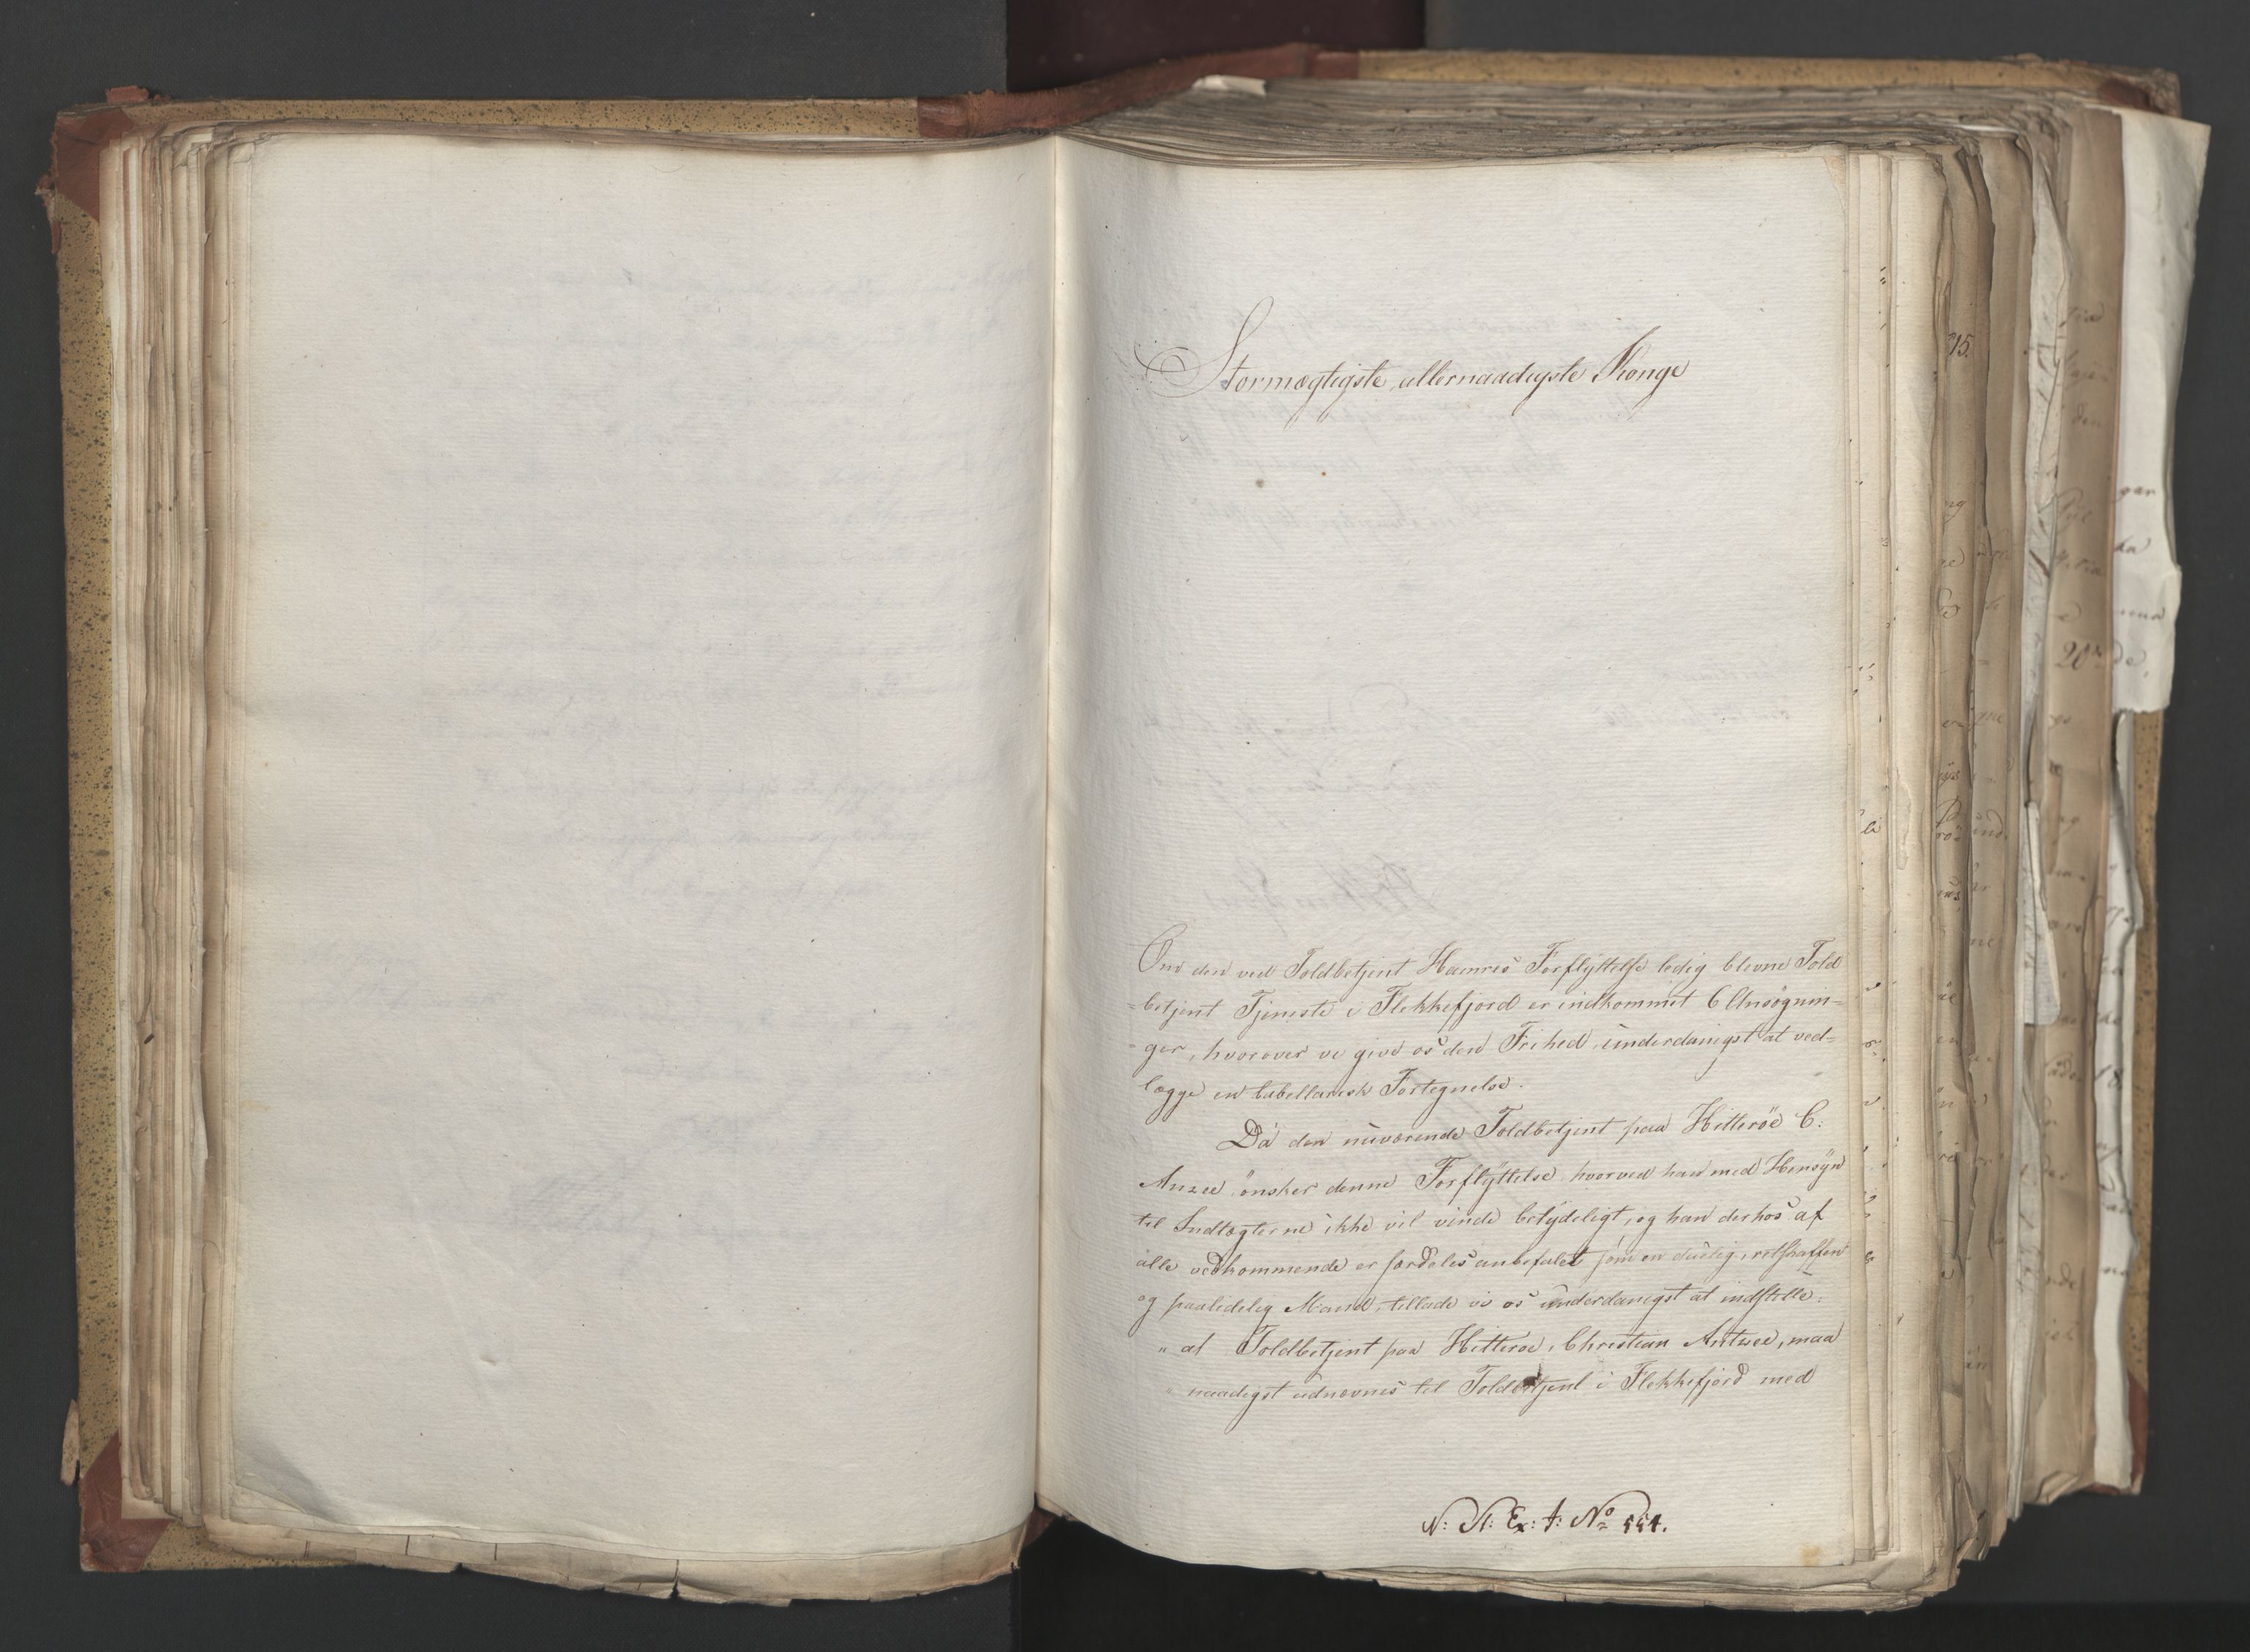 Stormægtigste, allernaadigste Konge
Om den ved Toldbetjent Hamres Forflyttelse ledig blevne Told
=betjent Tjeneste i Flekkefjord er indkommet 6 Ansögnin=
=ger, hvorover vi give os den Frihed underdanigst at ved=
lægge en tabellarisk Fortegnelse.
Da den nuværende Toldbetjent paa Hitteröe C:
Anzee önsker denne Forflyttelse hvorved han med Hensÿn
til Indtægterne ikke vil vinde betydeligt, og han derhos af
alle vedkommende er særdeles anbefalet som en duelig, retskaffen
og paalidelig Mand, tillade vi os underdanigst at indstille:
" at Toldbetjent paa Hitteroe, Christian Antzee, maa
" naadigst udnævnes til Toldbetjent i Flekkefjord med
N: St: Ex: A: No 554.
15.